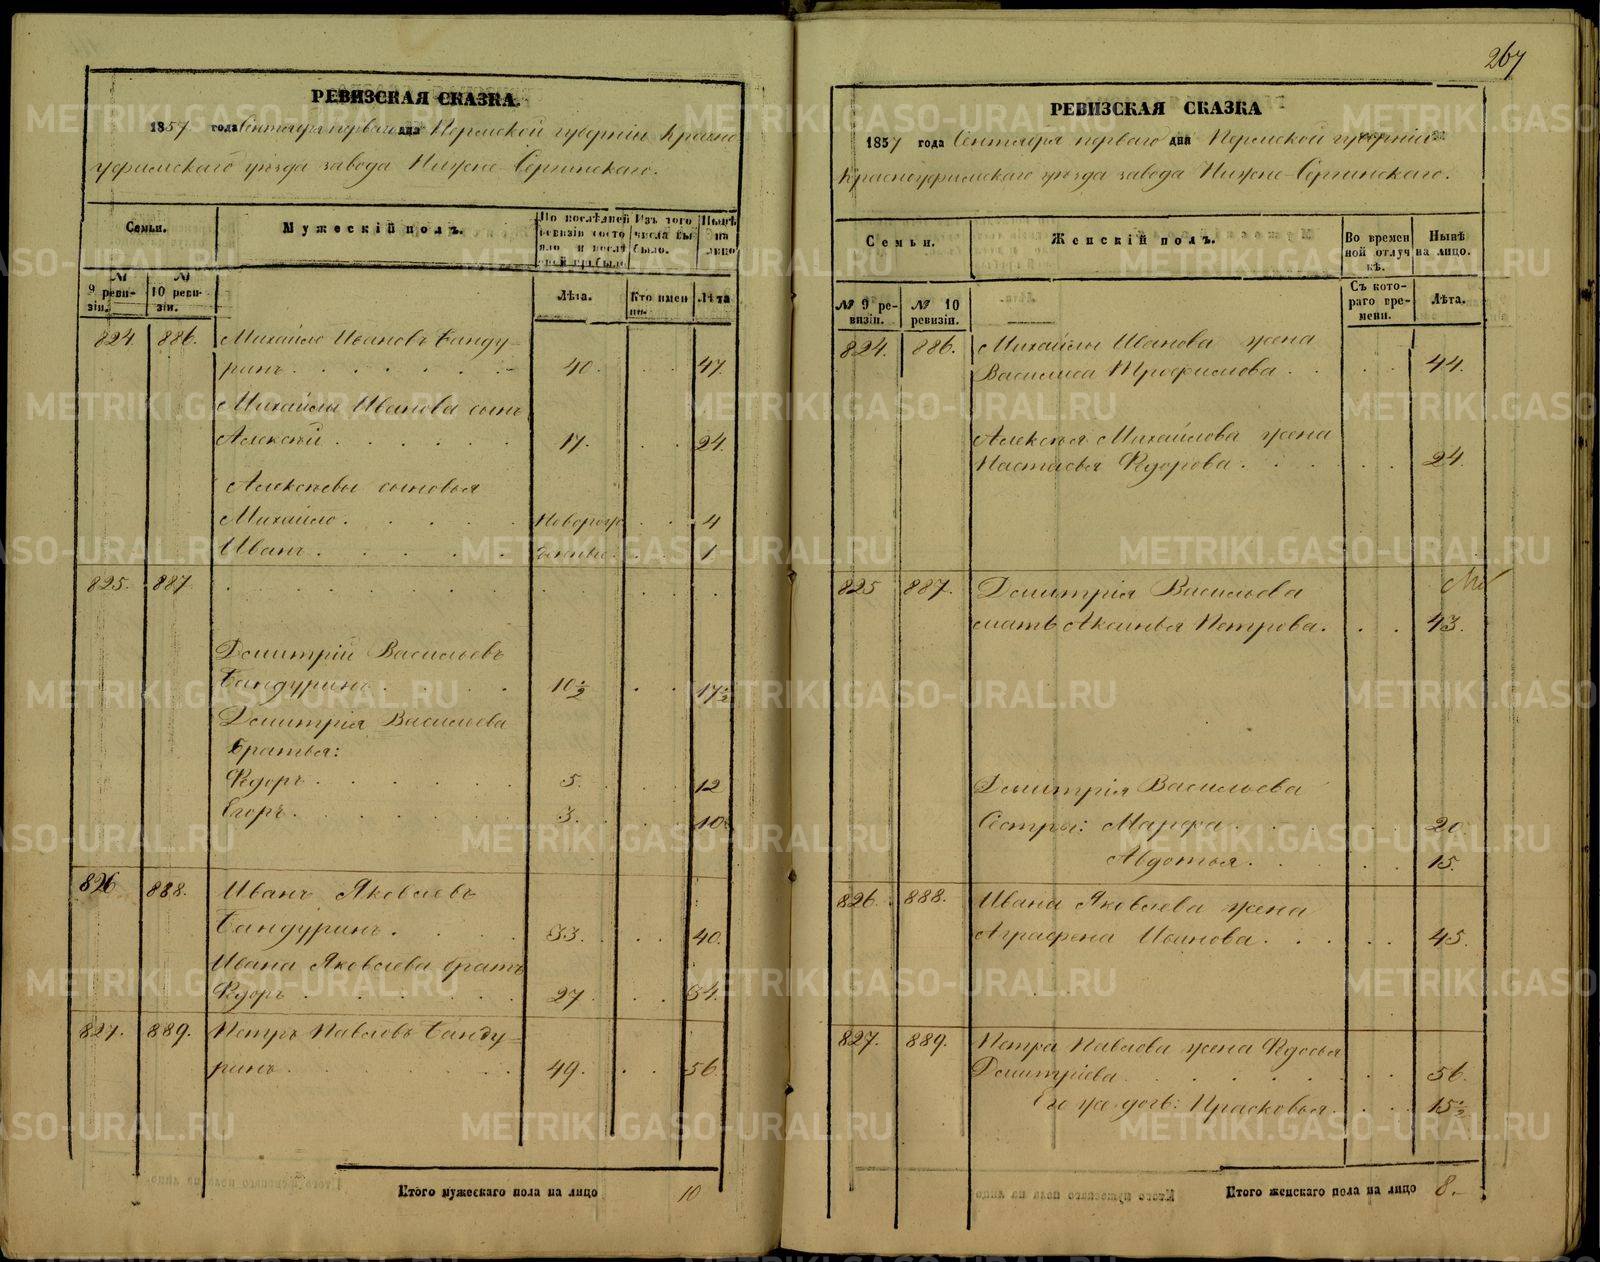 РЕВИЗСКАЯ СКАЗКА.
1857 года Сентября перваго дня Пермской губерніи Красно
уфимскаго уѣзда завода Нижне-Сергинскаго.
Семьи.
Мужескій полъ.
По послѣдней ревизіи состояло и послѣ оной прибыло
Изъ того числа выбыло.
Нынѣ на лицо
№ 9 ревизіи.
№ 10 ревизіи.
Лѣта.
Кто имен но
Лѣта
824 886. Михайло Ивановъ Банду-
ринъ 40. 47.
Михайлы Иванова сынъ
Алексѣй 17. 24.
Алексѣевы сыновья
Михайло новорож 4
Иванъ денные 1
825. 887.
Дмитрій Васильевъ
Бандуринъ 10½ 17½
Дмитрія Васильева
братья:
Ѳедоръ 5. 12
Егоръ 3. 10
826 888. Иванъ Яковлевъ
Бандуринъ. 33. 40.
Ивана Яковлева братъ
Ѳедоръ 27. 34.
827. 889. Петръ Павловъ Банду-
ринъ 49. 56.
Итого мужескаго пола на лицо 10
267
РЕВИЗСКАЯ СКАЗКА
1857 года Сентября перваго дня Пермской губерніи
Красноуфимскаго уѣзда завода Нижне-Сергинскаго.
Семьи.
Женскій полъ.
Во времен ной отлуч кѣ.
Нынѣ на лицо.
№ 9 ревизіи.
№ 10 ревизіи.
Съ кото раго вре мени.
Лѣта.
824. 886. Михайлы Иванова жена
Василиса Трофимова 44.
Алексѣя Михайлова жена
Настасья Ѳедорова 24.
825 887. Дмитрія Васильева
мать Аксинья Петрова. 43.
Дмитрія Васильева
Сестры: Марфа 20.
Авдотья. 15.
826. 888. Ивана Яковлева жена
Аграфена Иванова. 45.
827. 889. Петра Павлова жена Ѳедосья
Дмитріева 56.
Его же дочь: Прасковья. 15½
Итого женскаго пола на лицо 8.
METRIKI.GASO-URAL.RU